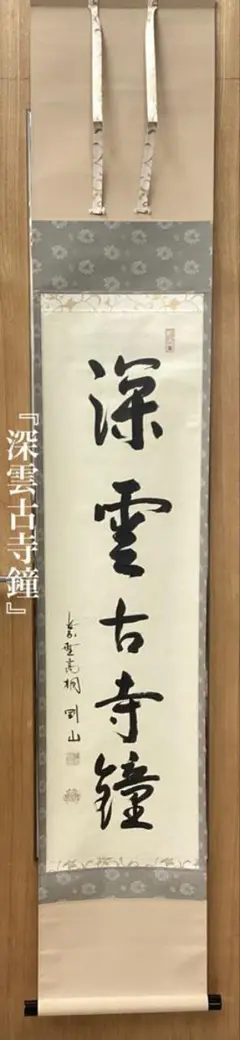 深雲古寺鐘
紫野高桐 剛山
『深雲古寺鐘』